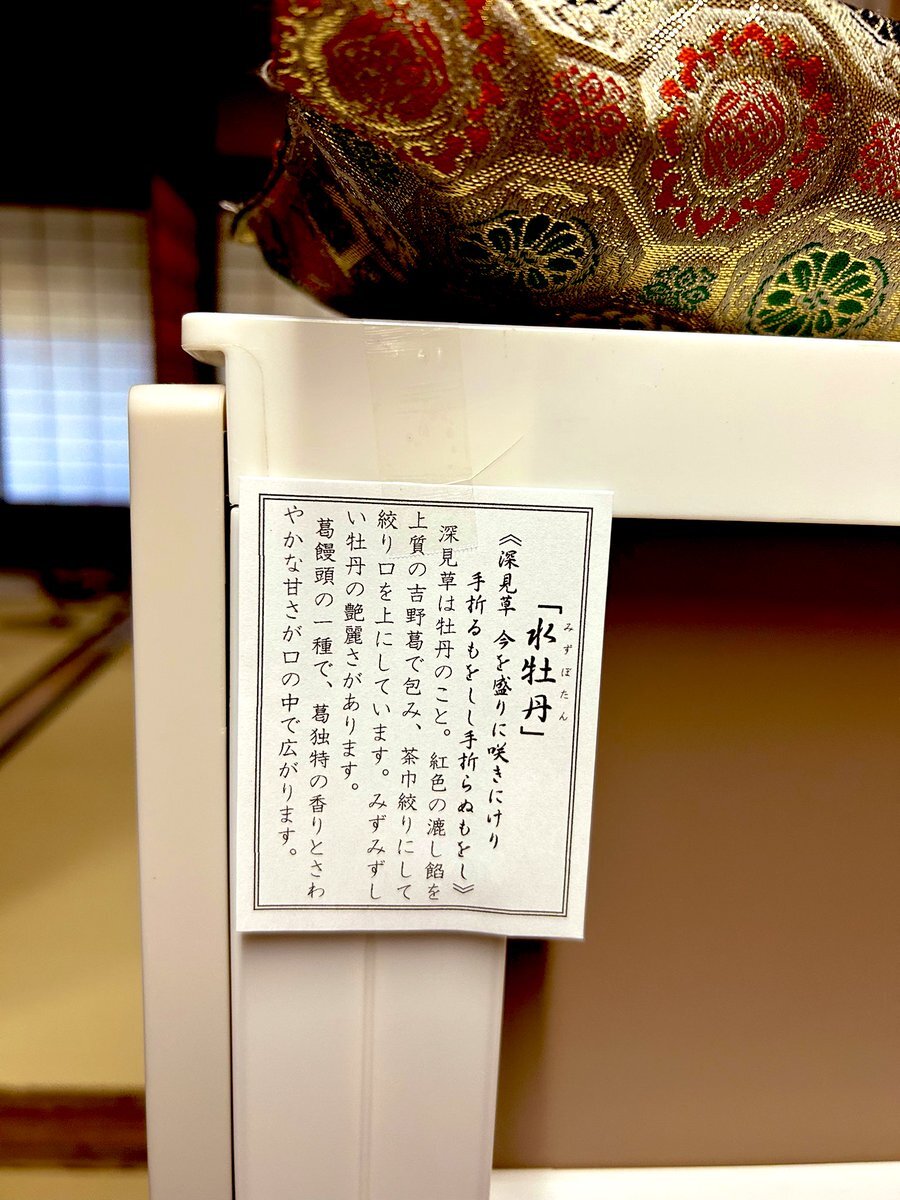 みずぼたん
「水牡丹」
《深見草 今を盛りに咲きにけり
手折るもをしし手折らぬもをし》
深見草は牡丹のこと。紅色の漉し餡を
上質の吉野葛で包み、茶巾絞りにして
絞り口を上にしています。みずみずし
い牡丹の艶麗さがあります。
葛饅頭の一種で、葛独特の香りとさわ
やかな甘さが口の中で広がります。